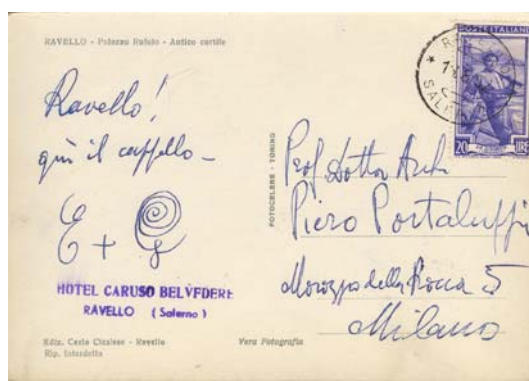 RAVELLO - Palazzo Rufolo - Antico cortile
Ravello!
giù il cappello -
E +
HOTEL CARUSO BELVEDERE
RAVELLO (Salerno)
Ediz. Carlo Cicalese - Ravello
Rip. Interdetta
Vera Fotografia
FOTOCELERE - TORINO
POSTE ITALIANE
20 LIRE
Prof Dottor Arch
Piero Portaluppi
Morozzo della Rocca 5
Milano